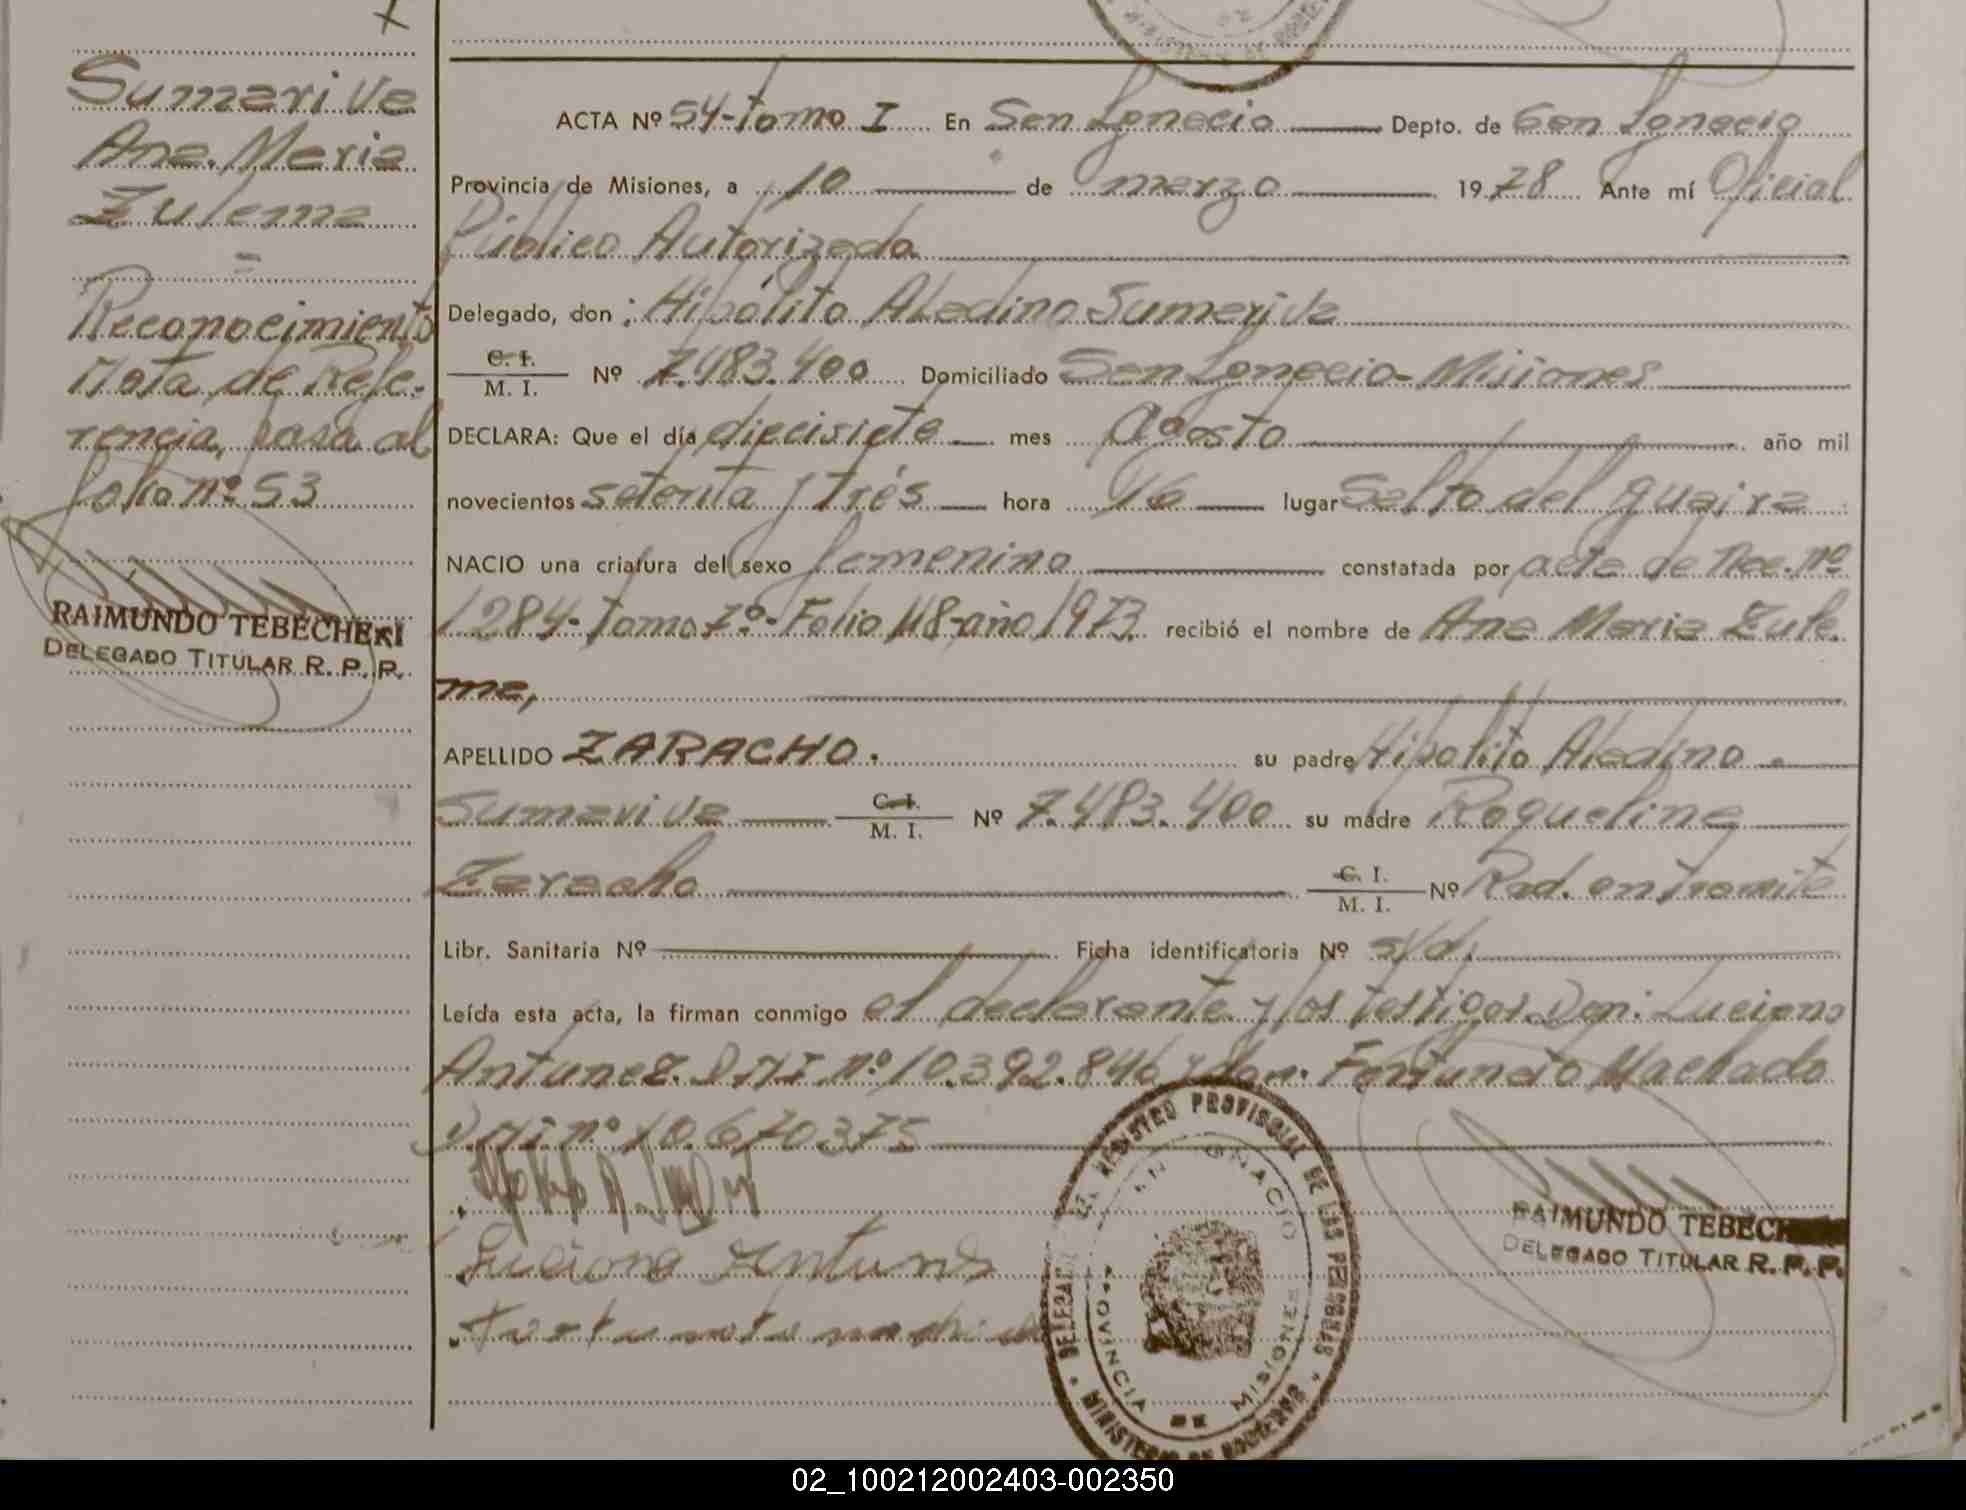 Sumariva
Ana Maria
Zulema
=
Reconocimiento
Nota de Refe-
rencia, pasa al
folio nº 53
RAIMUNDO TEBECHERI
DELEGADO TITULAR R. P. P.
ACTA Nº 54-tomo I En San Ignacio Depto. de San Ignacio
Provincia de Misiones, a 10 de marzo 1978 Ante mí Oficial
Público Autorizado
Delegado, don: Hipólito Aladino Sumariva
C. I. / M. I. Nº 7.483.400 Domiciliado San Ignacio-Misiones
DECLARA: Que el día diecisiete mes Agosto año mil
novecientos setenta y trés hora 16 lugar Salto del guaira
NACIO una criatura del sexo femenino constatada por acta de Nac. nº
1284-tomo 7º-Folio 48-año 1973 recibió el nombre de Ana Maria Zule
ma,
APELLIDO ZARACHO. su padre Hipolito Aladino
Sumariva C. I. / M. I. Nº 7.483.400 su madre Roquelina
Zaracho C. I. / M. I. Nº Rad. en tramite
Libr. Sanitaria Nº Ficha identificatoria Nº s/d.
Leída esta acta, la firman conmigo el declarante y los testigos Don: Luciano
Antunez. DNI nº 10.392.846 y don: Fortunato Machado
DNI nº 10.670.375
Luciano Antunes
DELEGACION REGISTRO PROVINCIAL DE LAS PERSONAS
SAN IGNACIO
PROVINCIA DE MISIONES
MINISTERIO DE GOBIERNO
RAIMUNDO TEBECH
DELEGADO TITULAR R. P. P.
02_100212002403-002350